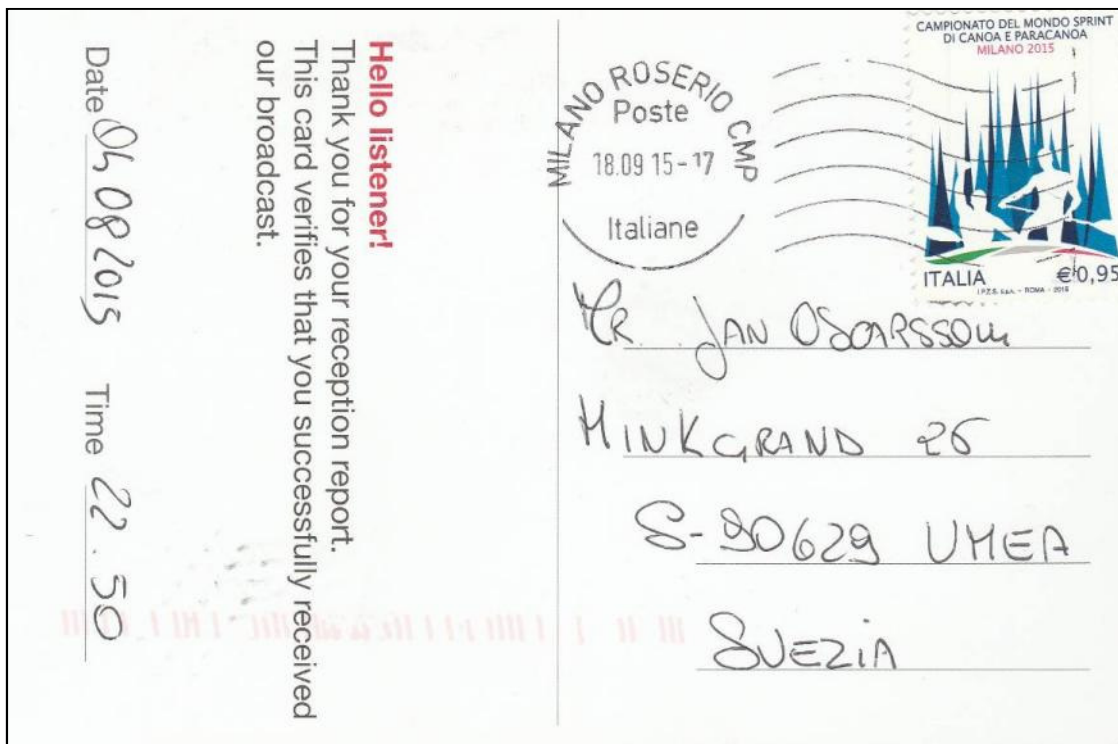 Hello listener!
Thank you for your reception report.
This card verifies that you successfully received
our broadcast.
Date 04 08 2015 Time 22.50
MILANO ROSERIO CMP
Poste
18.09 15-17
Italiane
CAMPIONATO DEL MONDO SPRINT
DI CANOA E PARACANOA
MILANO 2015
ITALIA €0,95
I.P.Z.S. S.p.A. - ROMA - 2015
MR. JAN OSCARSSON
MINKGRAND 26
S-90629 UMEA
SVEZIA